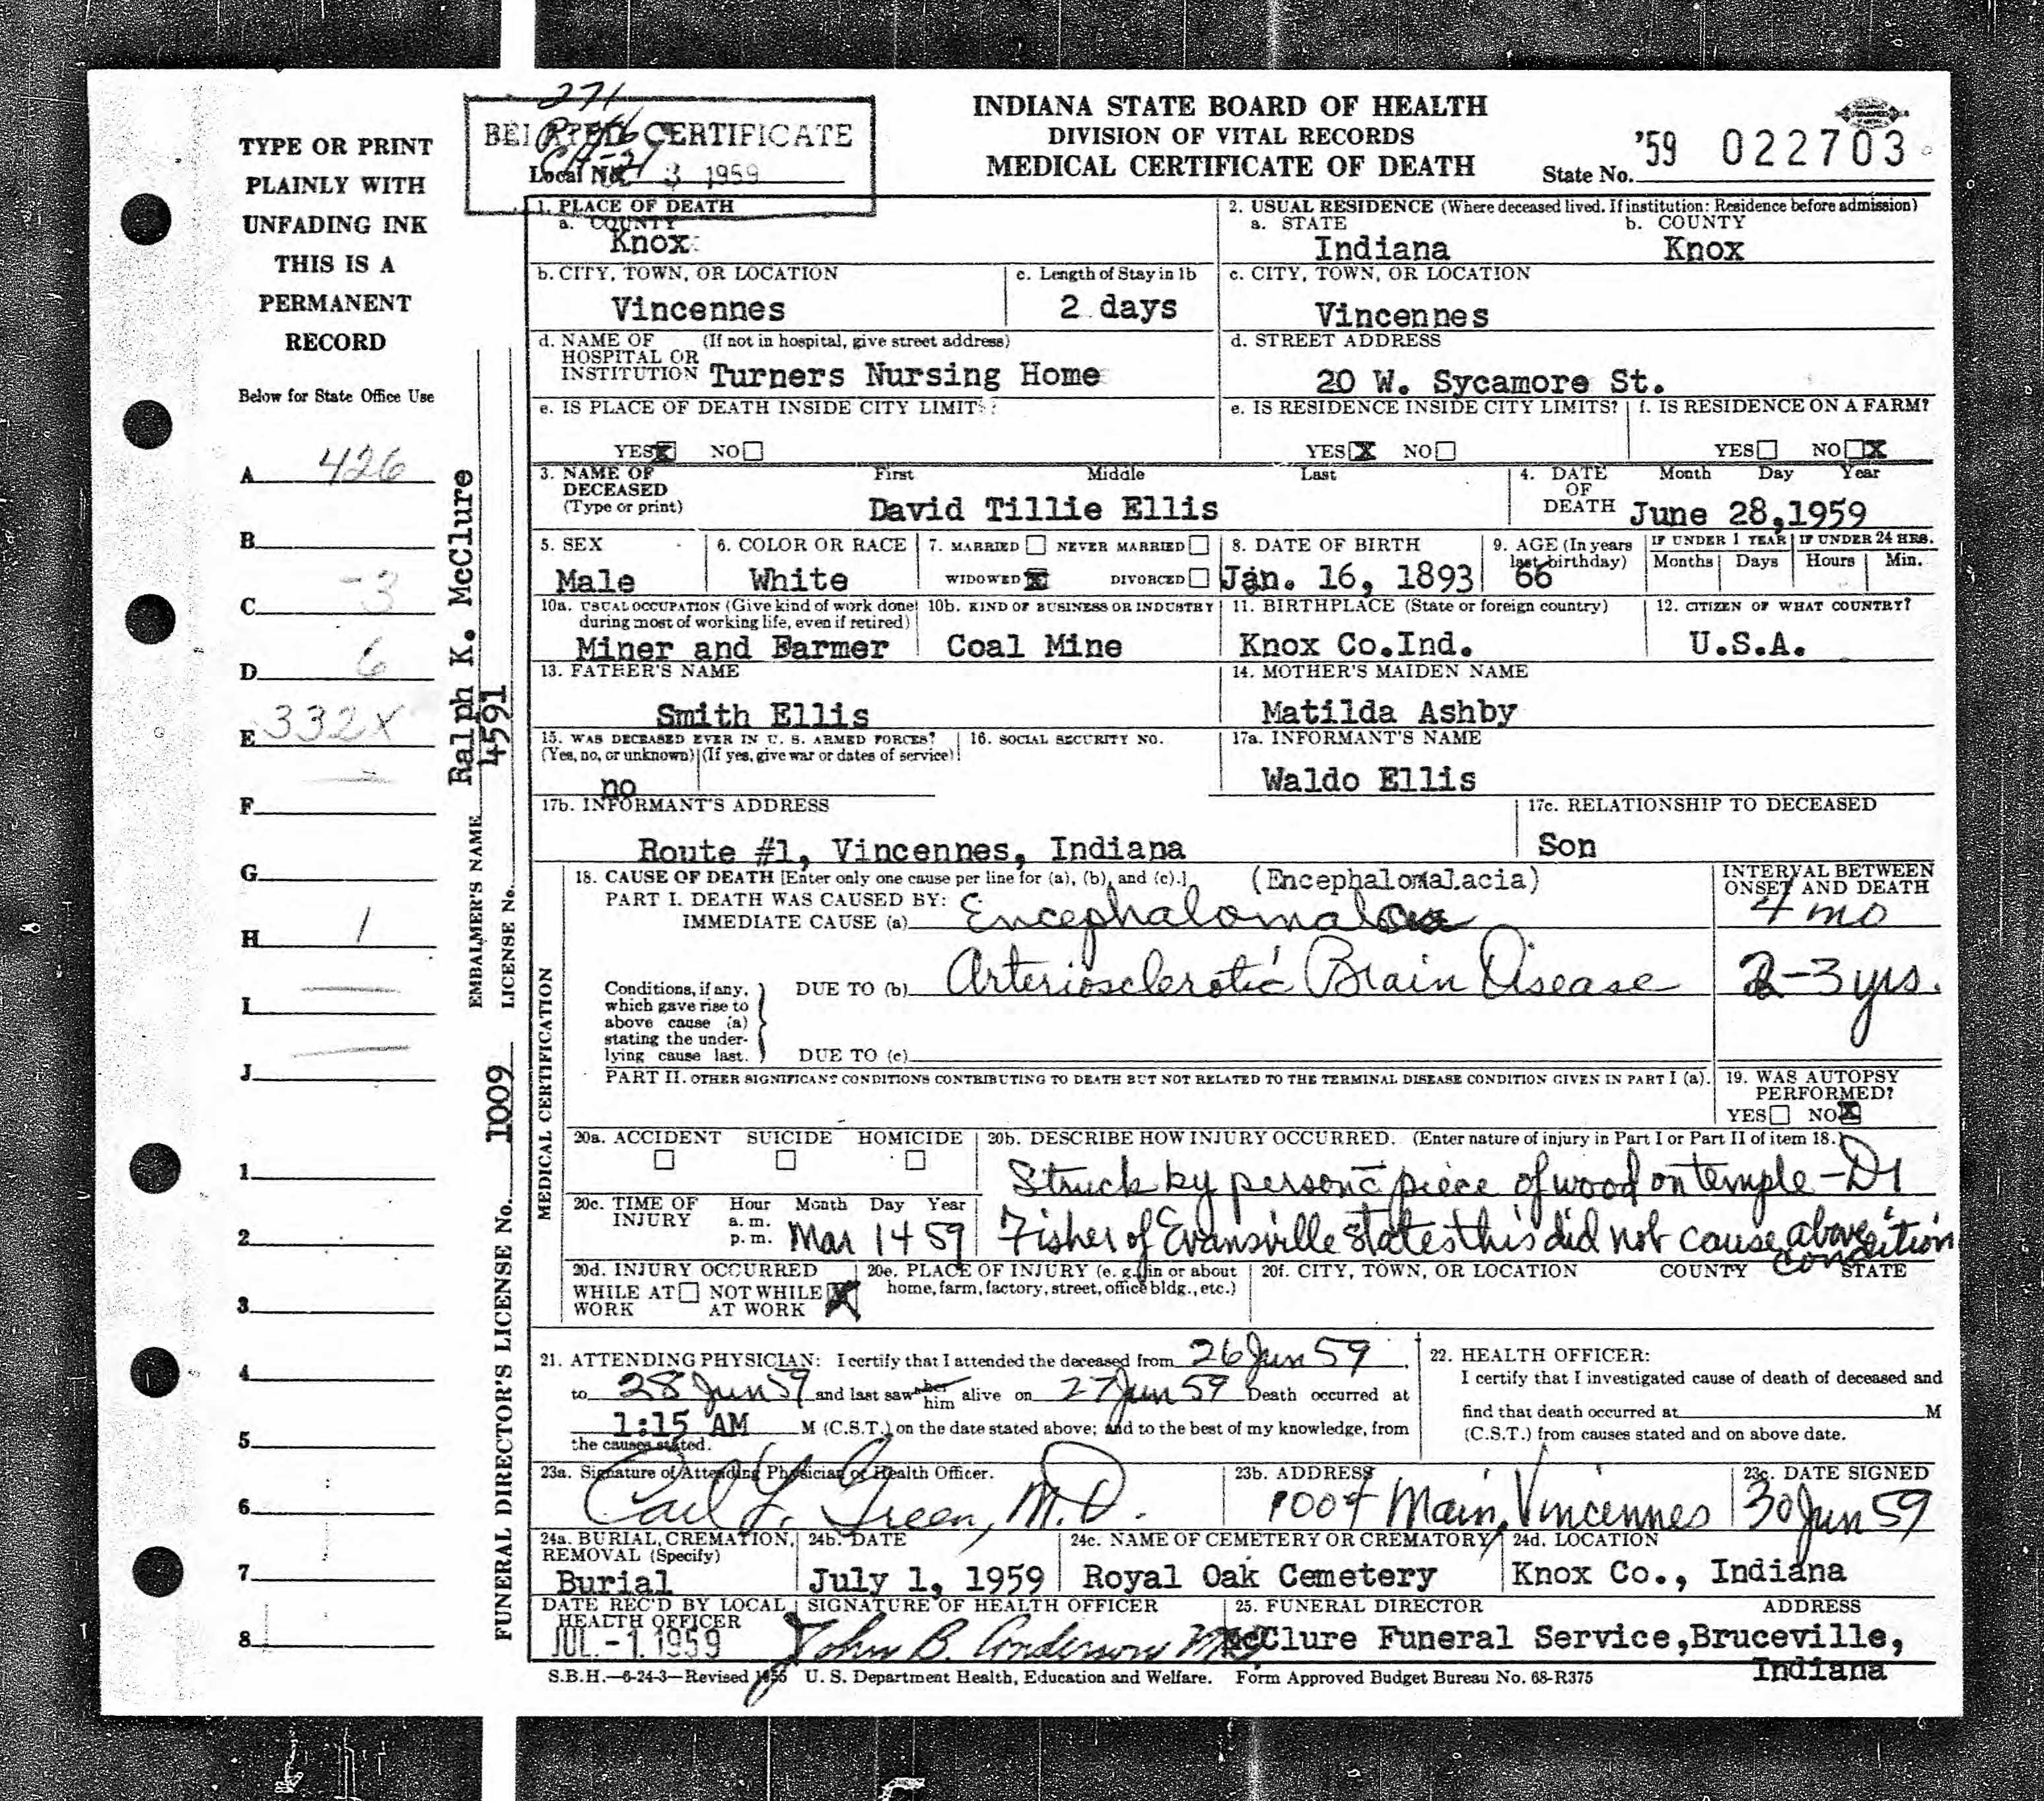 INDIANA STATE BOARD OF HEALTH
DIVISION OF VITAL RECORDS
MEDICAL CERTIFICATE OF DEATH
State No. '59 022703
271
CERTIFICATE
Local No. 3 1959
TYPE OR PRINT
PLAINLY WITH
UNFADING INK
THIS IS A
PERMANENT
RECORD
Below for State Office Use
A 426
B
C -3
D 6
E 332X
F
G
H 1
I
J
1
2
3
4
5
6
7
8
EMBALMER'S NAME Ralph K. McClure
LICENSE No. 4591
FUNERAL DIRECTOR'S LICENSE No. 1009
1. PLACE OF DEATH
a. COUNTY
Knox
2. USUAL RESIDENCE (Where deceased lived. If institution: Residence before admission)
a. STATE b. COUNTY
Indiana Knox
b. CITY, TOWN, OR LOCATION
Vincennes
c. Length of Stay in 1b
2 days
c. CITY, TOWN, OR LOCATION
Vincennes
d. NAME OF (If not in hospital, give street address)
HOSPITAL OR
INSTITUTION Turners Nursing Home
d. STREET ADDRESS
20 W. Sycamore St.
e. IS PLACE OF DEATH INSIDE CITY LIMITS?
YES X NO
e. IS RESIDENCE INSIDE CITY LIMITS?
YES X NO
f. IS RESIDENCE ON A FARM?
YES NO X
3. NAME OF First Middle Last
DECEASED
(Type or print) David Tillie Ellis
4. DATE Month Day Year
OF
DEATH June 28,1959
5. SEX
Male
6. COLOR OR RACE
White
7. MARRIED NEVER MARRIED
WIDOWED X DIVORCED
8. DATE OF BIRTH
Jan. 16, 1893
9. AGE (In years
last birthday)
66
IF UNDER 1 YEAR IF UNDER 24 HRS.
Months Days Hours Min.
10a. USUAL OCCUPATION (Give kind of work done
during most of working life, even if retired)
Miner and Farmer
10b. KIND OF BUSINESS OR INDUSTRY
Coal Mine
11. BIRTHPLACE (State or foreign country)
Knox Co.Ind.
12. CITIZEN OF WHAT COUNTRY?
U.S.A.
13. FATHER'S NAME
Smith Ellis
14. MOTHER'S MAIDEN NAME
Matilda Ashby
15. WAS DECEASED EVER IN U. S. ARMED FORCES?
(Yes, no, or unknown) (If yes, give war or dates of service)
no
16. SOCIAL SECURITY NO.
17a. INFORMANT'S NAME
Waldo Ellis
17b. INFORMANT'S ADDRESS
Route #1, Vincennes, Indiana
17c. RELATIONSHIP TO DECEASED
Son
MEDICAL CERTIFICATION
18. CAUSE OF DEATH [Enter only one cause per line for (a), (b), and (c).] (Encephalomalacia)
PART I. DEATH WAS CAUSED BY:
IMMEDIATE CAUSE (a) Encephalomalacia
INTERVAL BETWEEN
ONSET AND DEATH
4 mo
Conditions, if any,
which gave rise to
above cause (a)
stating the under-
lying cause last.
DUE TO (b) Arteriosclerotic Brain Disease 2-3 yrs.
DUE TO (c)
PART II. OTHER SIGNIFICANT CONDITIONS CONTRIBUTING TO DEATH BUT NOT RELATED TO THE TERMINAL DISEASE CONDITION GIVEN IN PART I (a).
19. WAS AUTOPSY
PERFORMED?
YES NO X
20a. ACCIDENT SUICIDE HOMICIDE
20b. DESCRIBE HOW INJURY OCCURRED. (Enter nature of injury in Part I or Part II of item 18.)
Struck by person c̄ piece of wood on temple - Dr
Fisher of Evansville states this did not cause above condition
20c. TIME OF Hour Month Day Year
INJURY a. m.
p. m. Mar 14 59
20d. INJURY OCCURRED
WHILE AT NOT WHILE X
WORK AT WORK
20e. PLACE OF INJURY (e. g., in or about
home, farm, factory, street, office bldg., etc.)
20f. CITY, TOWN, OR LOCATION COUNTY STATE
21. ATTENDING PHYSICIAN: I certify that I attended the deceased from 26 Jun 59,
to 28 Jun 59 and last saw her him alive on 27 Jun 59 Death occurred at
1:15 AM M (C.S.T.) on the date stated above; and to the best of my knowledge, from
the causes stated.
22. HEALTH OFFICER:
I certify that I investigated cause of death of deceased and
find that death occurred at M
(C.S.T.) from causes stated and on above date.
23a. Signature of Attending Physician or Health Officer.
Carl L. Green, M.D.
23b. ADDRESS
Main, Vincennes
23c. DATE SIGNED
30 Jun 59
24a. BURIAL, CREMATION,
REMOVAL (Specify)
Burial
24b. DATE
July 1, 1959
24c. NAME OF CEMETERY OR CREMATORY
Royal Oak Cemetery
24d. LOCATION
Knox Co., Indiana
DATE REC'D BY LOCAL
HEALTH OFFICER
JUL -1 1959
SIGNATURE OF HEALTH OFFICER
John B. Anderson MD
25. FUNERAL DIRECTOR ADDRESS
McClure Funeral Service,Bruceville,
Indiana
S.B.H.—6-24-3—Revised 1955 U. S. Department Health, Education and Welfare. Form Approved Budget Bureau No. 68-R375